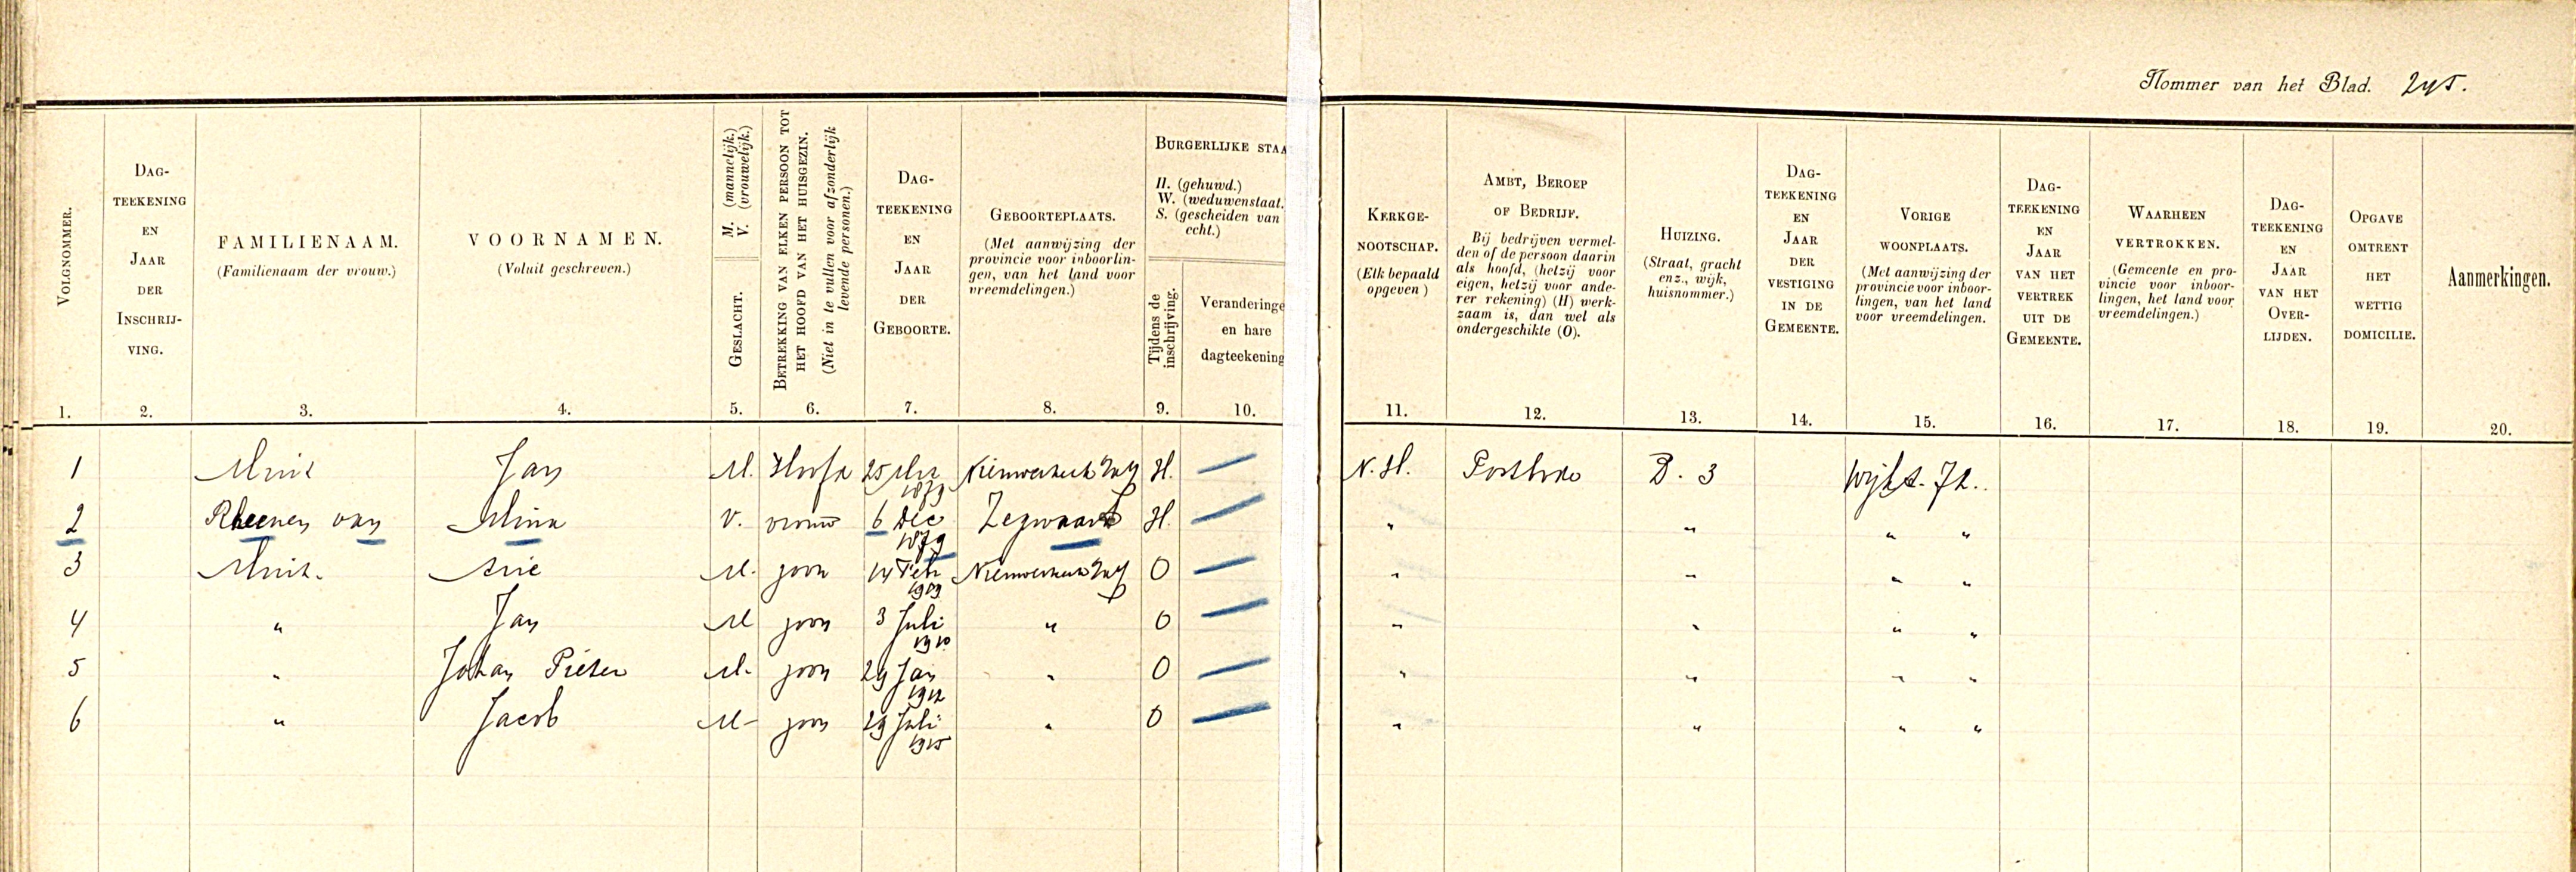 Nommer van het Blad. 245.
VOLGNOMMER.
DAG-
TEEKENING
EN
JAAR
DER
INSCHRIJ-
VING.
FAMILIENAAM.
(Familienaam der vrouw.)
VOORNAMEN.
(Voluit geschreven.)
M. (mannelijk.)
V. (vrouwelijk.)
GESLACHT.
BETREKKING VAN ELKEN PERSOON TOT
HET HOOFD VAN HET HUISGEZIN.
(Niet in te vullen voor afzonderlijk
levende personen.)
DAG-
TEEKENING
EN
JAAR
DER
GEBOORTE.
GEBOORTEPLAATS.
(Met aanwijzing der
provincie voor inboorlin-
gen, van het land voor
vreemdelingen.)
BURGERLIJKE STAA
H. (gehuwd.)
W. (weduwenstaat.
S. (gescheiden van
echt.)
Tijdens de
inschrijving.
Veranderinge
en hare
dagteekening
KERKGE-
NOOTSCHAP.
(Elk bepaald
opgeven)
AMBT, BEROEP
OF BEDRIJF.
Bij bedrijven vermel-
den of de persoon daarin
als hoofd, (hetzij voor
eigen, hetzij voor ande-
rer rekening) (H) werk-
zaam is, dan wel als
ondergeschikte (O).
HUIZING.
(Straat, gracht
enz., wijk,
huisnommer.)
DAG-
TEEKENING
EN
JAAR
DER
VESTIGING
IN DE
GEMEENTE.
VORIGE
WOONPLAATS.
(Met aanwijzing der
provincie voor inboor-
lingen, van het land
voor vreemdelingen.
DAG-
TEEKENING
EN
JAAR
VAN HET
VERTREK
UIT DE
GEMEENTE.
WAARHEEN
VERTROKKEN.
(Gemeente en pro-
vincie voor inboor-
lingen, het land voor
vreemdelingen.)
DAG-
TEEKENING
EN
JAAR
VAN HET
OVER-
LIJDEN.
OPGAVE
OMTRENT
HET
WETTIG
DOMICILIE.
Aanmerkingen.
1. 2. 3. 4. 5. 6. 7. 8. 9. 10. 11. 12. 13. 14. 15. 16. 17. 18. 19. 20.
1 Jan M. Hoofd 25 1879 Nieuwerkerk H. — N. H. Postbode D. 3
2 Rheenen van Mina V. vrouw 6 Dec 1879 Zegwaart H. — " " " "
3 Arie M. zoon 14 Feb 1909 Nieuwerkerk O — " " " "
4 " Jan M zoon 3 Juli 1910 " O — " " " "
5 " Johan Pieter M. zoon 29 Jan 1912 " O — " " " "
6 " Jacob M zoon 29 Juli 1915 " O — " " " "